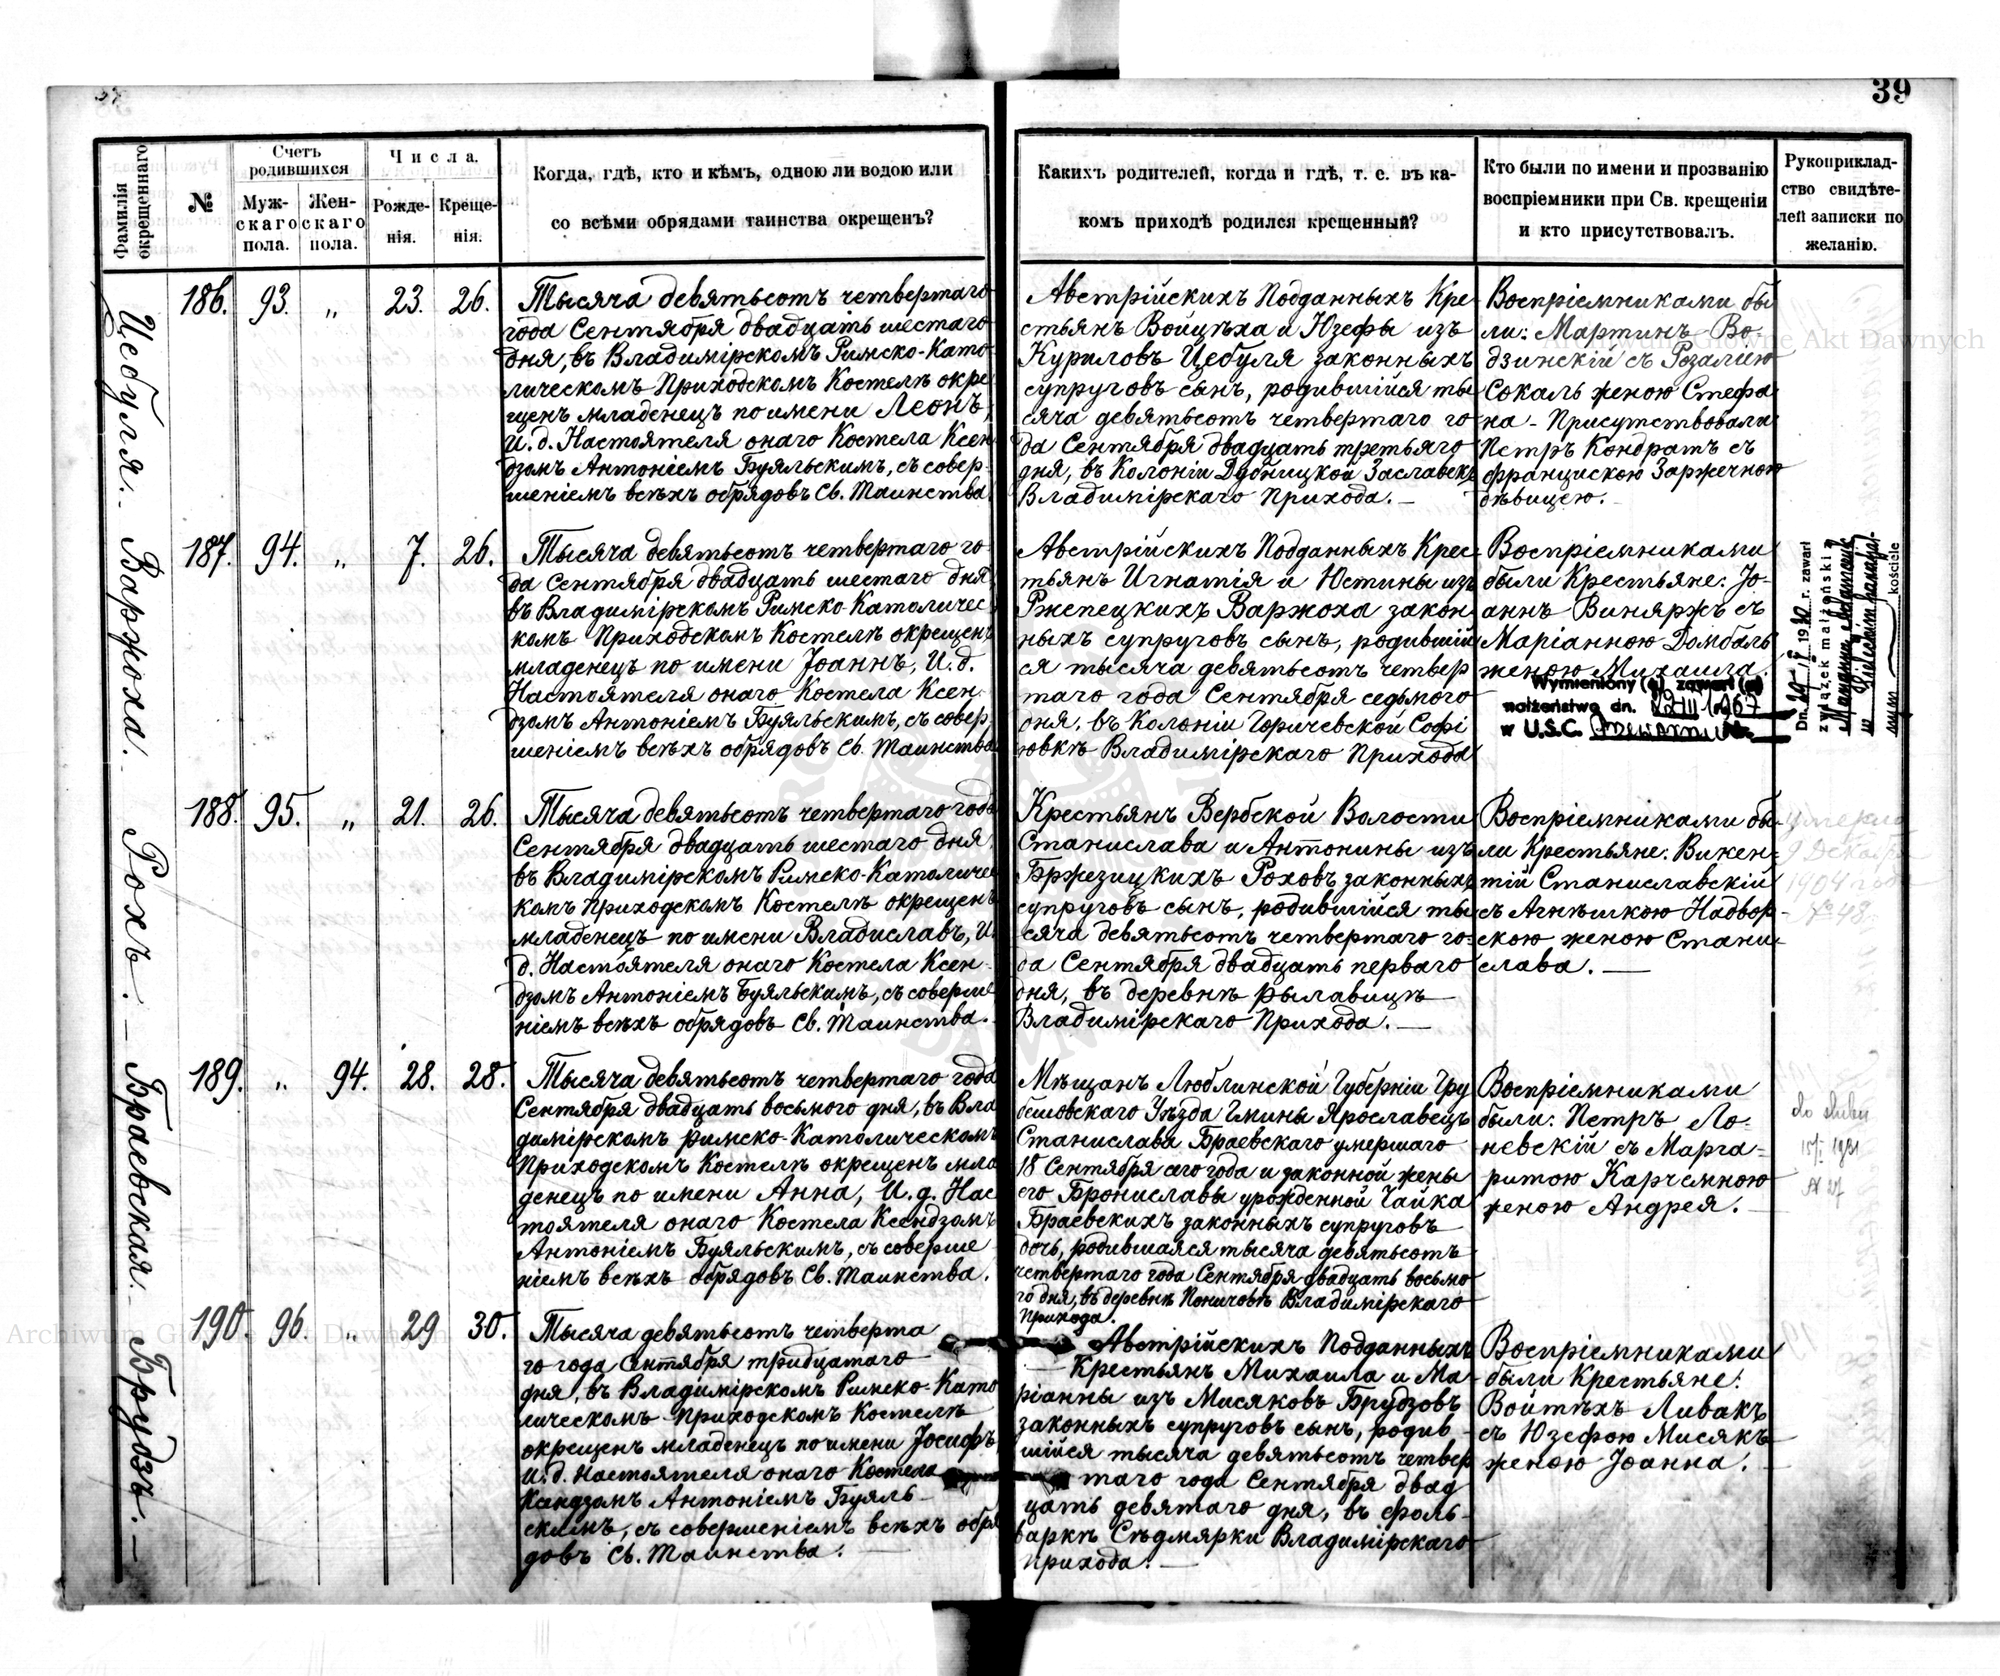 39
Фамилія окрещеннаго
№
Счетъ родившихся
Муж-
скаго
пола.
Жен-
скаго
пола.
Числа.
Рожде-
нія.
Креще-
нія.
Когда, гдѣ, кто и кѣмъ, одною ли водою или
со всѣми обрядами таинства окрещенъ?
Какихъ родителей, когда и гдѣ, т. е. въ ка-
комъ приходѣ родился крещенный?
Кто были по имени и прозванію
воспріемники при Св. крещеніи
и кто присутствовалъ.
Рукоприклад-
ство свидѣте-
лей записки по
желанію.
Цебуля.
186. 93. „ 23. 26.
Тысяча девятьсотъ четвертаго
года Сентября двадцать шестаго
дня, въ Владимірскомъ Римско-Като-
лическомъ Приходскомъ Костелѣ окре-
щенъ младенецъ по имени Леонъ,
И. д. Настоятеля онаго Костела Ксен-
дзомъ Антоніемъ Буяльскимъ, съ совер-
шеніемъ всѣхъ обрядовъ Св. Таинства
Австрійскихъ Подданныхъ Кре-
стьянъ Войцѣха и Юзефы изъ
Куриловъ Цебуля законныхъ
супруговъ сынъ, родившійся ты-
сяча девятьсотъ четвертаго го-
да Сентября двадцать третьяго
дня, въ Колоніи Дубницкой Заславскѣ
Владимірскаго Прихода. —
Воспріемниками бы-
ли: Мартинъ Во-
дзинскій съ Розаліею
Сокаль женою Стефа-
на - Присутствовали
Петръ Кондратъ съ
Францискою Заржечною
дѣвицею. -
Варжоха.
187. 94. „ 7. 26.
Тысяча девятьсотъ четвертаго го-
да Сентября двадцать шестаго дня
въ Владимірскомъ Римско-Католичес-
комъ Приходскомъ Костелѣ окрещенъ
младенецъ по имени Іоаннъ, И. д.
Настоятеля онаго Костела Ксен-
дзомъ Антоніемъ Буяльскимъ, съ совер-
шеніемъ всѣхъ обрядовъ Св. Таинства
Австрійскихъ Подданныхъ Крес-
тьянъ Игнатія и Юстины изъ
Ржепецкихъ Варжоха закон-
ныхъ супруговъ сынъ, родившій-
ся тысяча девятьсотъ четвер-
таго года Сентября седьмого
дня, въ Колоніи Горичевской Софі-
ювкѣ Владимірскаго Прихода
Воспріемниками
были Крестьяне: Іо-
аннъ Виняржъ съ
Маріанною Домбаль
женою Михаила.
Wymieniony (a) zawarł (a)
małżeństwo dn.
w U.S.C.
Dn. r. zawarł
związek małżeński z
w
kościele
Рохъ. —
188. 95. „ 21. 26.
Тысяча девятьсотъ четвертаго года
Сентября двадцать шестаго дня,
въ Владимірскомъ Римско-Католичес-
комъ Приходскомъ Костелѣ окрещенъ
младенецъ по имени Владиславъ, И.
д. Настоятеля онаго Костела Ксен-
дзомъ Антоніемъ Буяльскимъ, съ соверше-
ніемъ всѣхъ обрядовъ Св. Таинства. -
Крестьянъ Вербской Волости
Станислава и Антонины изъ
Бржезицкихъ Роховъ законныхъ
супруговъ сынъ, родившійся ты-
сяча девятьсотъ четвертаго го-
да Сентября двадцать перваго
дня, въ деревнѣ Рылавицѣ
Владимірскаго Прихода. —
Воспріемниками бы-
ли Крестьяне: Викен-
тій Станиславскій
съ Агнѣшкою Надвор-
скою женою Стани-
слава. —
9 Декабря
1904 года
№ 48.
Браевская. -
189. „ 94. 28. 28.
Тысяча девятьсотъ четвертаго года
Сентября двадцать восьмого дня, въ Вла-
димірскомъ Римско-Католическомъ
Приходскомъ Костелѣ окрещенъ мла-
денецъ по имени Анна, И. д. Нас-
тоятеля онаго Костела Ксендзомъ
Антоніемъ Буяльскимъ, съ соверше-
ніемъ всѣхъ обрядовъ Св. Таинства.
Мѣщанъ Люблинской Губерніи Гру-
бешовскаго Уѣзда Гмины Ярославецъ
Станислава Браевскаго умершаго
18 Сентября сего года и законной жены
его Брониславы урожденной Чайка
Браевскихъ законныхъ супруговъ
дочь, родившаяся тысяча девятьсотъ
четвертаго года Сентября двадцать восьмо-
го дня, въ деревнѣ Поничовѣ Владимірскаго
Прихода.
Воспріемниками
были: Петръ Ло-
невскій съ Марга-
ритою Карчемною
женою Андрея. -
do ślubu
Брудзъ. —
190. 96. „ 29 30.
Тысяча девятьсотъ четверта
го года Сентября тридцатаго
дня, въ Владимірскомъ Римско-Като
лическомъ Приходскомъ Костелѣ
окрещенъ младенецъ по имени Іосифъ,
И. д. Настоятеля онаго Костела
Ксендзомъ Антоніемъ Буяль-
скимъ, съ совершеніемъ всѣхъ обря
довъ Св. Таинства. —
Австрійскихъ Подданныхъ
Крестьянъ Михаила и Ма-
ріанны изъ Мисяковъ Брудзовъ
законныхъ супруговъ сынъ, родив-
шійся тысяча девятьсотъ четвер
таго года Сентября двад
цать девятаго дня, въ фоль-
варкѣ Сѣдмярки Владимірскаго
Прихода. —
Воспріемниками
были Крестьяне:
Войтѣхъ Ливакъ
съ Юзефою Мисякъ
женою Іоанна. -
Archiwum Główne Akt Dawnych
Archiwum Główne Akt Dawnych